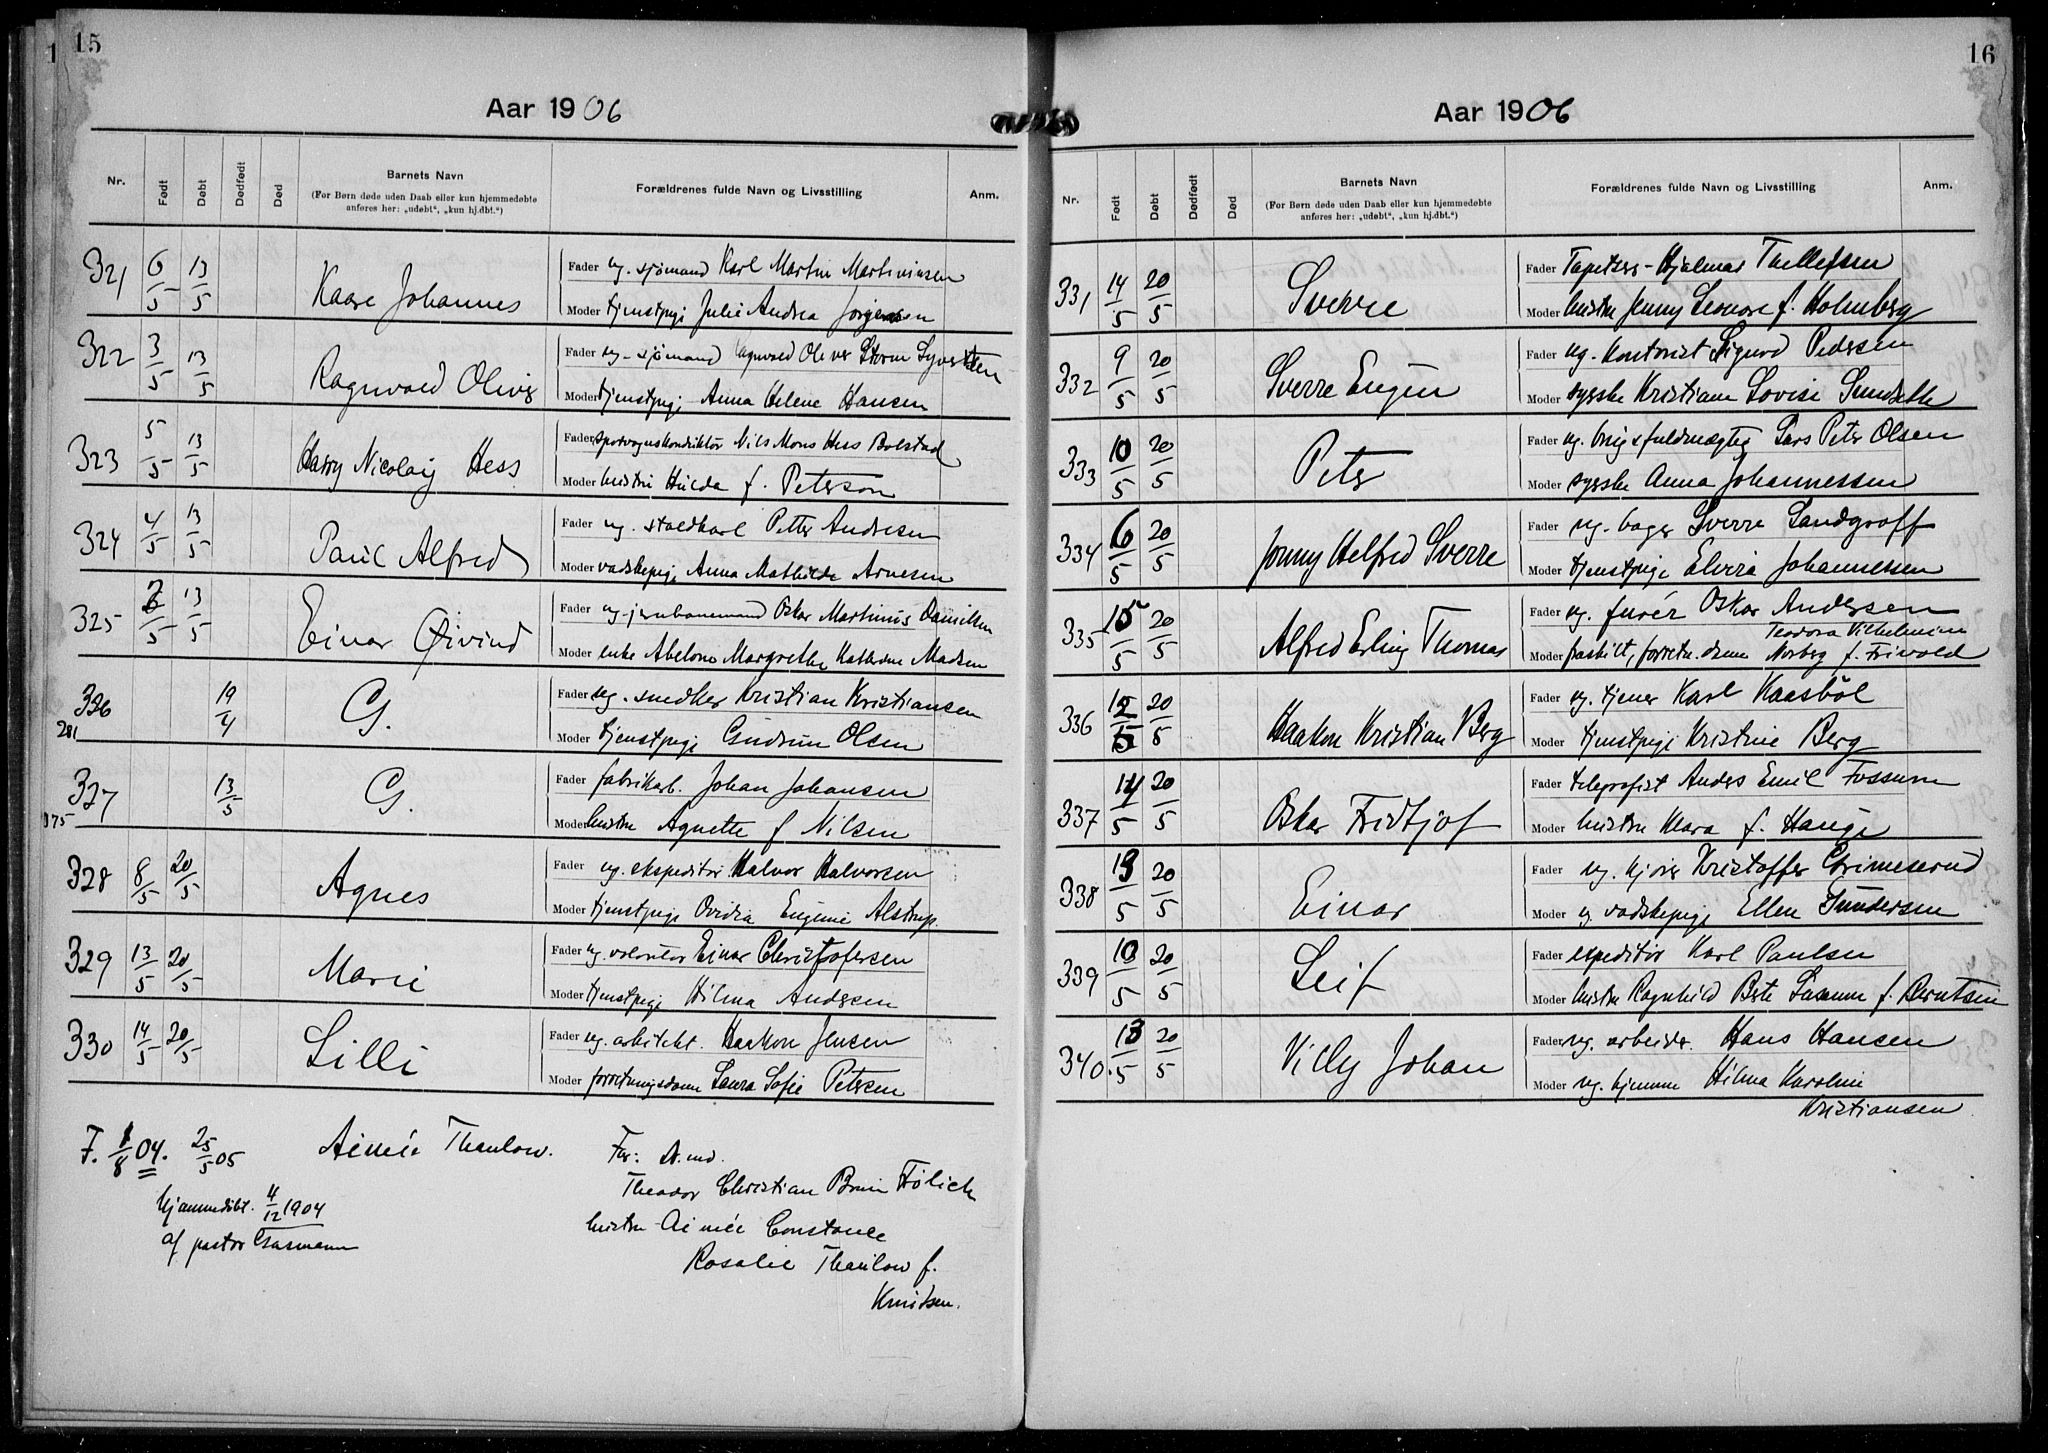 15
Aar 1906
Nr.
Født
Døbt
Dødfødt
Død
Barnets Navn
(For Børn døde uden Daab eller kun hjemmedøbte
anføres her: „udøbt“, „kun hj.dbt.“)
Forældrenes fulde Navn og Livsstilling
Anm.
321 6/5 13/5 Kaare Johannes
Fader ug. sjømand Karl Martin Martininsen
Moder tjenstpige Julie Andrea Jørgensen
322 3/5 13/5 Ragnvald Oliver
Fader ug. sjømand Ragnvald Oliver Storm Syvertsen
Moder tjenstpige Anna Helene Hansen
323 5/5 13/5 Harry Nicolaij Hess
Fader sporvognskonduktør Nils Mons Hess Bolstad
Moder hustru Hulda f. Peterson
324 4/5 13/5 Paul Alfred
Fader ug. staldkarl Petter Andresen
Moder vadskepige Anna Mathilde Arnesen
325 2/5 13/5 Einar Øivind
Fader ug. jernbanemand Oskar Martinius Danielsen
Moder enke Abelone Margrethe Kathrine Madsen
336 281 19/4 G.
Fader ug. snedker Kristian Kristiansen
Moder tjenstpige Gudrun Olsen
327 375 13/5 G.
Fader fabrikarb. Johan Johansen
Moder hustru Agnette f Nilsen
328 8/5 20/5 Agnes
Fader ug. ekspeditør Halvor Halvorsen
Moder tjenstpige Ovidia Eugenie Alstrup.
329 13/5 20/5 Marie
Fader ug. volontør Einar Christofersen
Moder tjenstpige Hilma Andersen
330 14/5 20/5 Lilli
Fader ug. arkitekt. Haakon Jensen
Moder forretningsdame Laura Sofie Petersen
F. 1/8 04. 25/5 05 Aimée Thaulow.
Hjemmedøbt. 4/12 1904
af pastor
Far: Dr. med.
Theodor Christian Brun Frølich
hustru Aimée Constance
Rosalie Thaulow f.
Knudsen.
16
Aar 1906
Nr.
Født
Døbt
Dødfødt
Død
Barnets Navn
(For Børn døde uden Daab eller kun hjemmedøbte
anføres her: „udøbt“, „kun hj.dbt.“)
Forældrenes fulde Navn og Livsstilling
Anm.
331 14/5 20/5 Sverre
Fader Tapetserer Hjalmar Thellefsen
Moder hustru Jenny Leonore f. Holmberg
332 9/5 20/5 Sverre Eugen
Fader ug. Kontorist Sigurd Pedersen
Moder syerske Kristiane Lovise Sundseth
333 10/5 20/5 Peter
Fader ug. fuldmægtig Lars Peter Olsen
Moder syerske Anna Johannessen
334 6/5 20/5 Jonny Helfred Sverre
Fader ug. bager Sverre Landgraff
Moder tjenstpige Elvira Johannessen
335 15/5 20/5 Alfred Erling Thomas
Fader ug. furér Oskar Andersen
Teodora Vilhelmine
Moder fraskilt, forretn. dame Norberg f. Frivold
336 12/5 20/5 Haakon Kristian Berg
Fader ug. tjener Karl Kaasbøl
Moder tjenstpige Kristine Berg
337 14/5 20/5 Oskar Fridtjof
Fader telegrafist Anders Emil Fossum
Moder hustru Klara f. Hauge
338 13/5 20/5 Einar
Fader ug. kjører Kristoffer Grimeserud
Moder ug. vadskepige Ellen Gundersen
339 10/5 20/5 Leif
Fader expeditør Karl Paulsen
Moder hustru Ragnhild Bete Susanne f. Berntsen
340. 13/5 20/5 Villy Johan
Fader ug. arbeider. Hans Hansen
Moder ug. hjemme Hilma Karoline
Kristiansen